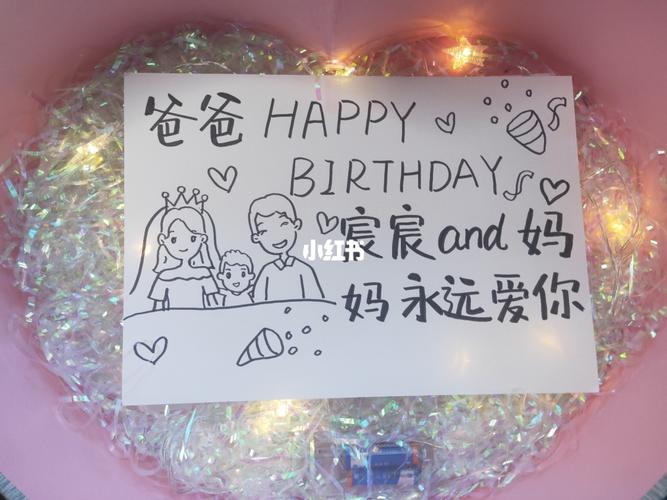 爸爸 HAPPY
BIRTHDAY
宸宸and妈
妈永远爱你
小红书